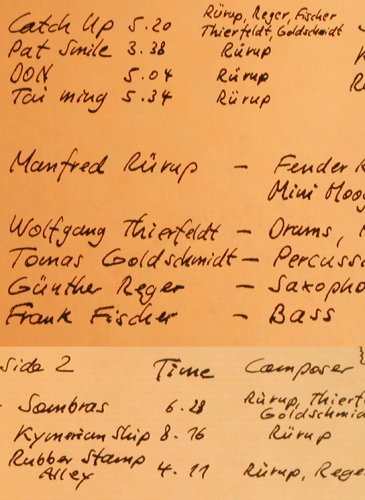 Catch Up 5.20 Rürup, Reger, Fischer
Thierfeldt, Goldschmidt
Pat Smile 3.38 Rürup
DON 5.04 Rürup
Tai ming 5.34 Rürup
Manfred Rürup — Fender
Mini Moog
Wolfgang Thierfeldt — Drums,
Tomas Goldschmidt — Percussi
Günther Reger — Saxopho
Frank Fischer — Bass
Side 2 Time Composer
Sombras 6.28 Rürup, Thierfel
Goldschmid
Kymerian Ship 8.16 Rürup
Rubber Stamp
Alley 4.11 Rürup, Rege